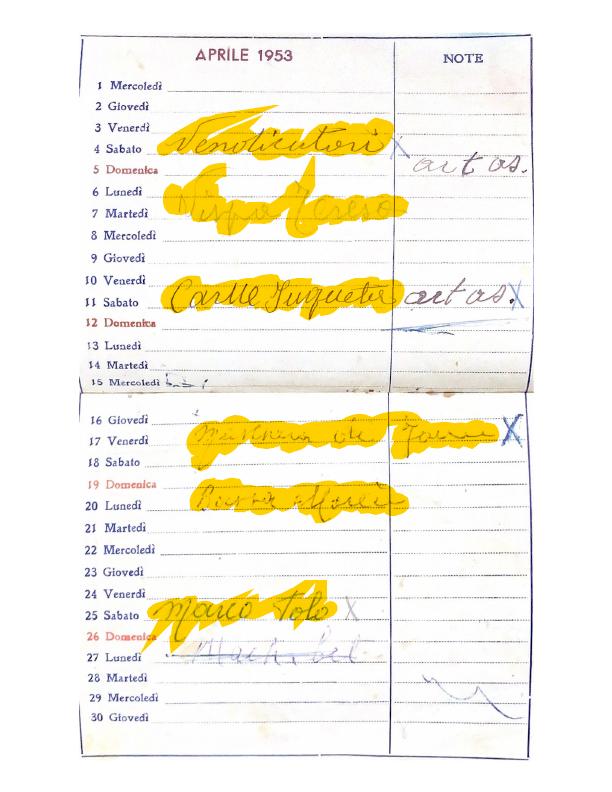 APRILE 1953
NOTE
1 Mercoledì
2 Giovedì
3 Venerdì
4 Sabato Venditutori
art as.
5 Domenica
6 Lunedì
7 Martedì
8 Mercoledì
9 Giovedì
10 Venerdì
11 Sabato art as. X
12 Domenica
13 Lunedì
14 Martedì
15 Mercoledì
16 Giovedì
17 Venerdì X
18 Sabato
19 Domenica
20 Lunedì
21 Martedì
22 Mercoledì
23 Giovedì
24 Venerdì
25 Sabato Marco Tolo X
26 Domenica
27 Lunedì
28 Martedì
29 Mercoledì
30 Giovedì